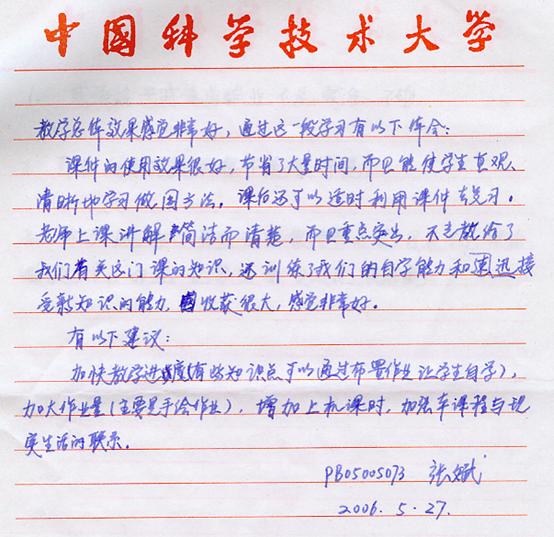 中国科学技术大学
教学总体效果感觉非常好，通过这一段学习有以下体会：
课件的使用效果很好，节省了大量时间，而且能使学生直观、
清晰地学习做图方法。课后还可以适时利用课件去复习。
老师上课讲解简洁而清楚，而且重点突出，不光教给了
我们有关这门课的知识，还训练了我们的自学能力和迅接
受新知识的能力，收获很大，感觉非常好。
有以下建议：
加快教学进度(有些知识点可以通过布置作业让学生自学)，
加大作业量(主要是手绘作业)，增加上机课时，加强本课程与现
实生活的联系。
PB05005073 张斌
2006.5.27.